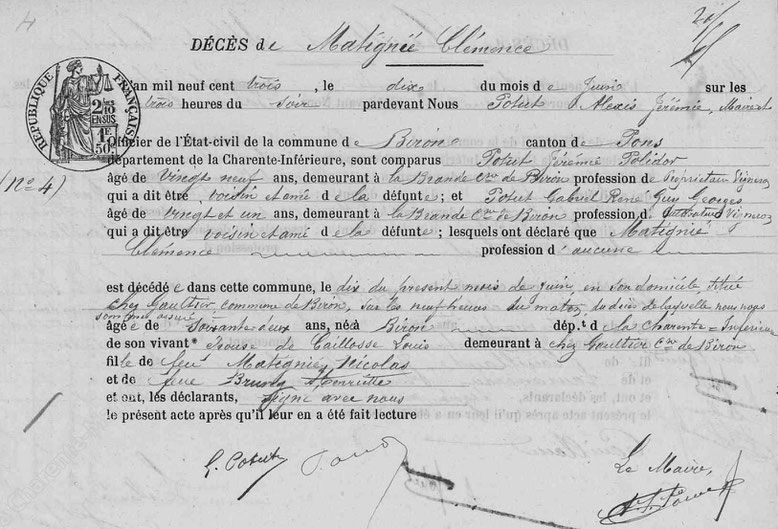 4
DÉCÈS de Matignée Clémence
RÉPUBLIQUE FRANÇAISE
2/10 EN SUS
1F 50
an mil neuf cent trois, le dix du mois de Juin sur les
trois heures du soir pardevant Nous Potut Alexis Jérémie, Maire et
Officier de l'État-civil de la commune de Biron canton de Pons
département de la Charente-Inférieure, sont comparus Potut Jérémie Polidor
(No 4)
âgé de vingt neuf ans, demeurant à la Brande Cne de Biron profession de Propriétaire Vigneron
qui a dit être voisin et amé de la défunte; et Potut Gabriel René Guy Georges
âgé de vingt et un ans, demeurant à la Brande Cne de Biron profession d'
qui a dit être voisin et amé de la défunte; lesquels ont déclaré que Matignié
Clémence profession d'aucune
est décédée dans cette commune, le dix du present mois de Juin, en son domicile situé
chez Gaultier commune de Biron, sur les neuf heures du matin, du décès de laquelle nous nous
sommes assuré
âgée de Soixante deux ans, née à Biron dép.t de la Charente-Inférieure
de son vivant Epouse de Caillosse Louis demeurant à chez Gaultier Cne de Biron
fille de feu Matignier Nicolas
et de feue Brung Henriette
et ont, les déclarants, signé avec nous
le présent acte après qu'il leur en a été fait lecture
G. Potut
Le Maire,